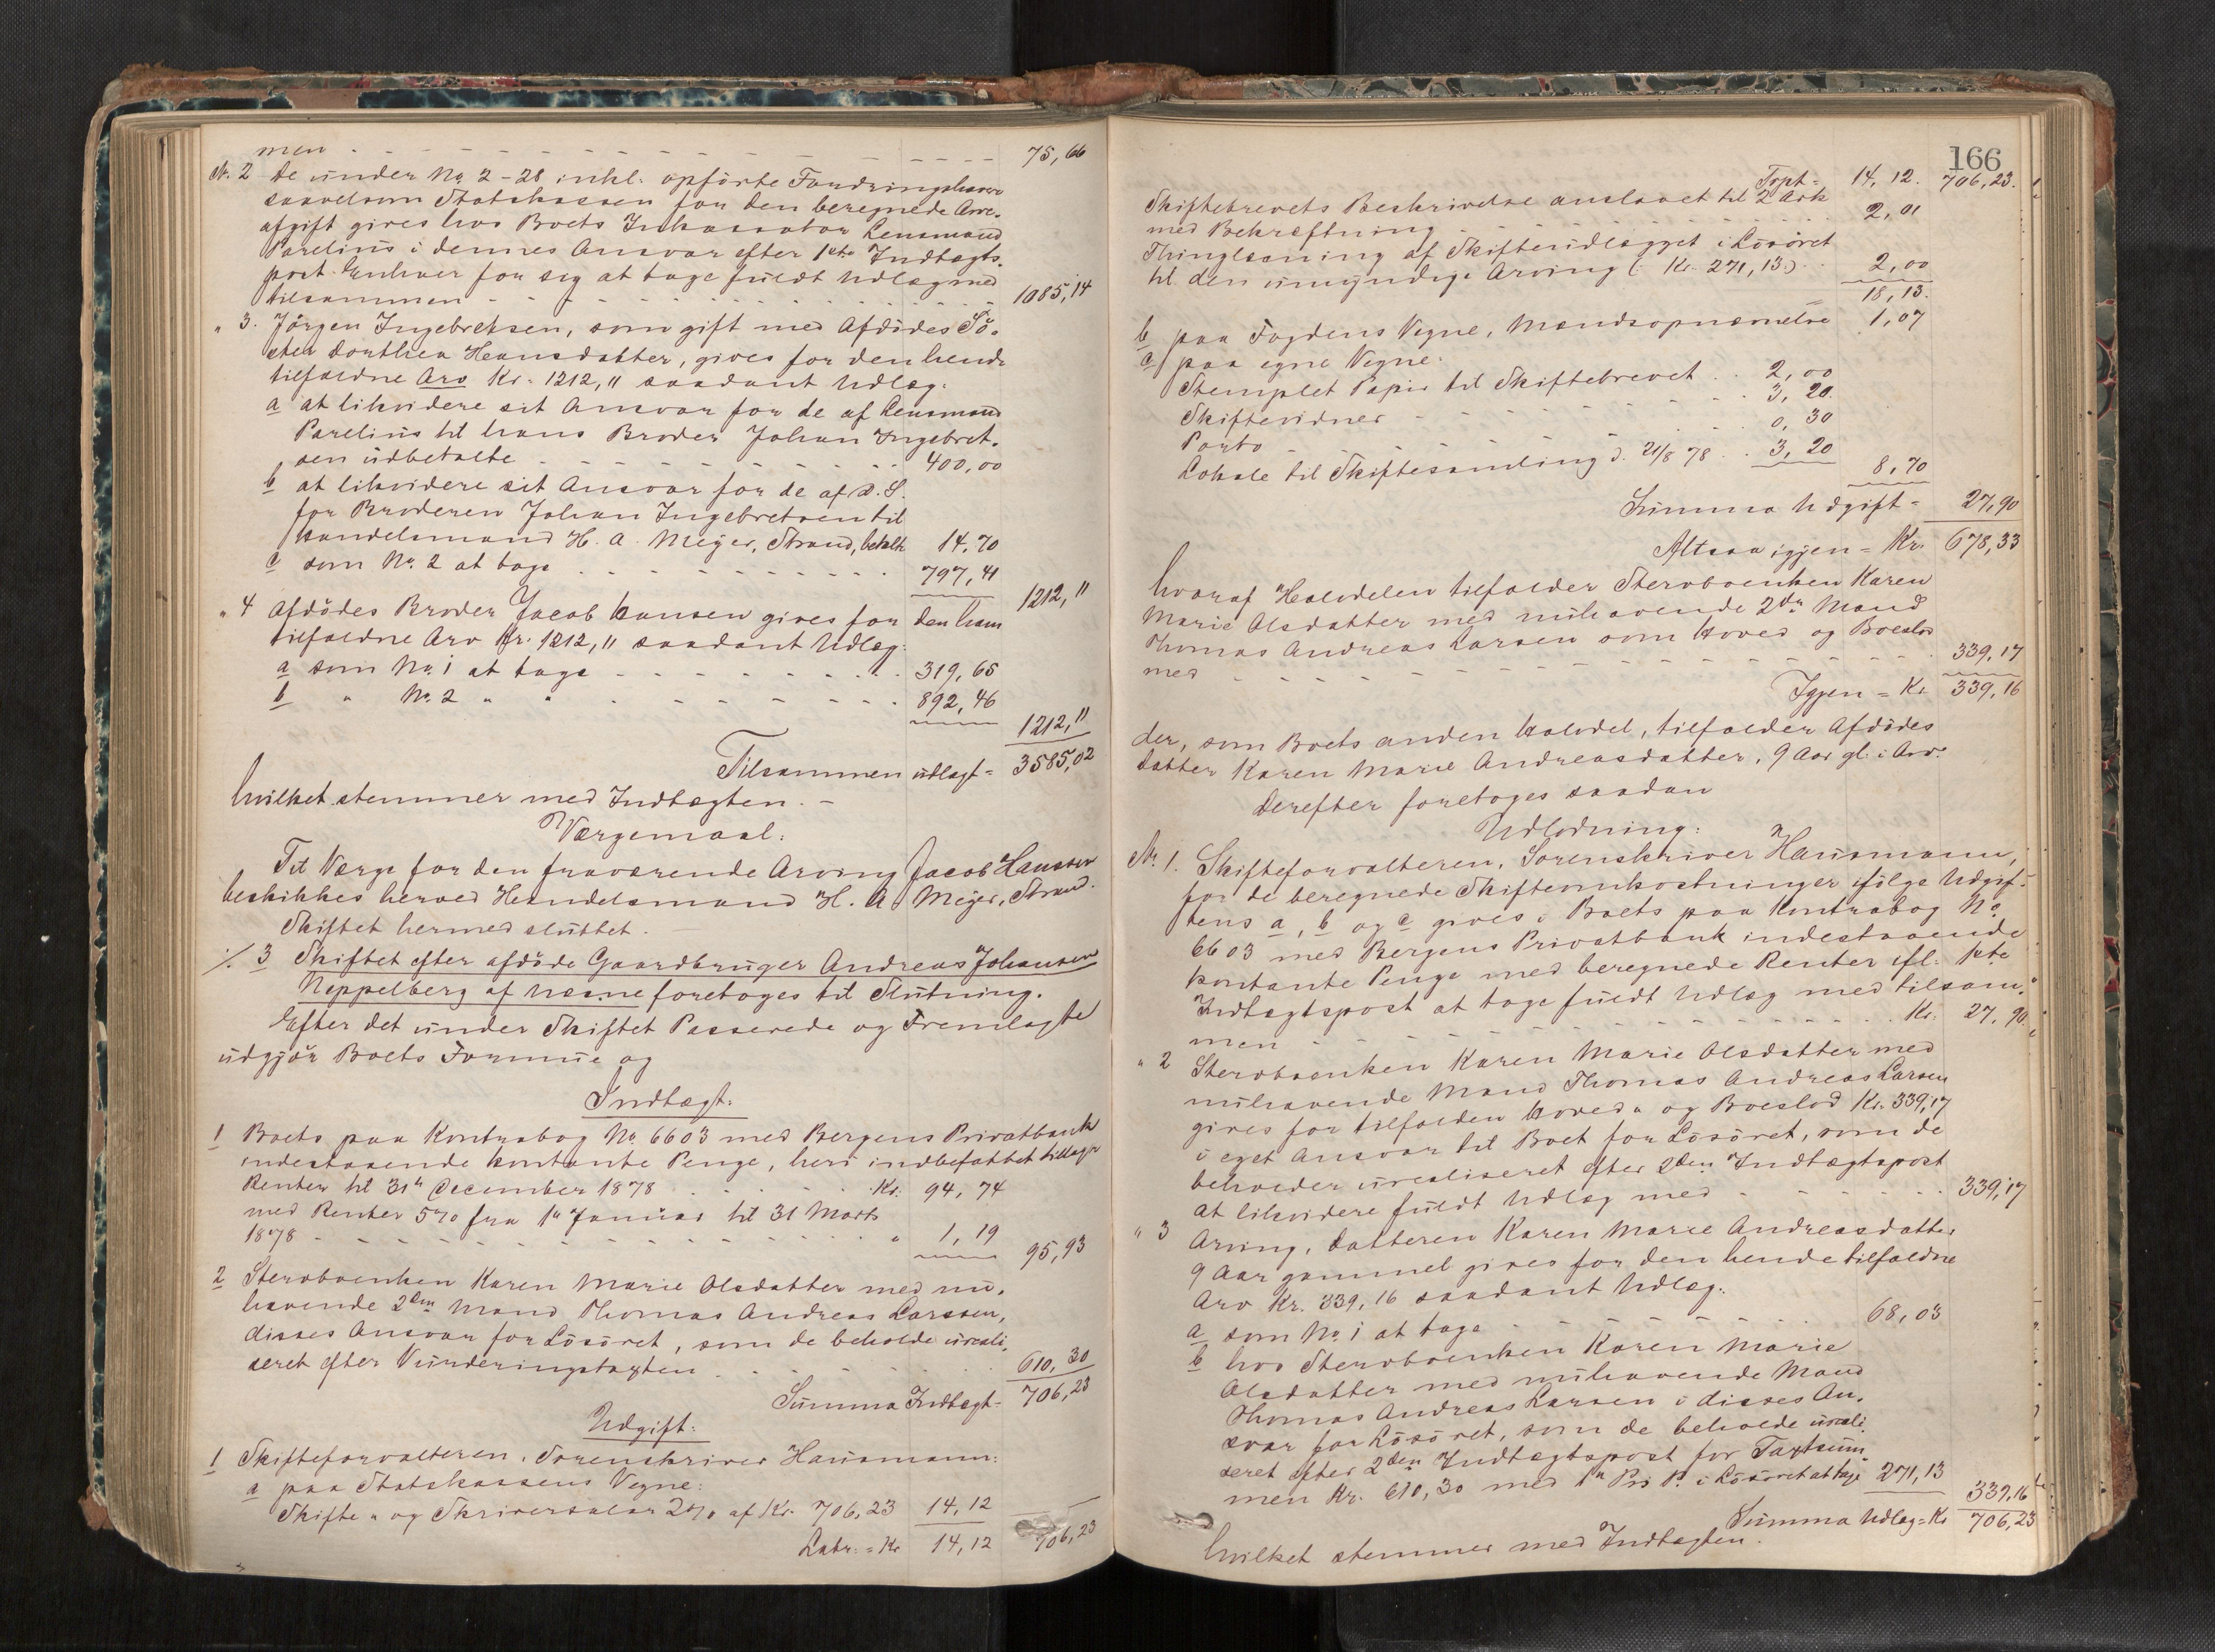 men - - - - - - - - - - - - 75,66
Nr. 2 De under No 2-28 inkl. opførte Fordringshavere
saavelsom Statskassen for den beregnede Arve-
afgift gives hos Boets Inkassator Lensmand
Parelius i dennes Ansvar efter 1ste Indtægts-
post Enhver for sig at tage fuldt Udlæg med
tilsammen - - - - - - - - - 1085,14
" 3. Jørgen Ingebretsen, som gift med Afdødes Sø-
ster Dorthea Hansdatter, gives for den hende
tilfaldne Arv Kr. 1212,11 saadant Udlæg:
a at likvidere sit Ansvar for de af Lensmand
Parelius til hans Broder Johan Ingebret-
sen udbetalte - - - - - - - 400,00
b at likvidere sit Ansvar for de af d. S.
for Broderen Johan Ingebretsen til
Handelsmand H. A. Meyer, Strand, betalte 14,70
c som No 2 at tage - - - - - - 797,41
1212,11
" 4 Afdødes Broder Jacob Hansen gives for den ham
tilfaldne Arv Kr. 1212,11 saadant Udlæg:
a som No 1 at tage - - - - - - 319,65
b " No 2 " " - - - - - - 892,46
1212,11
Tilsammen udlagt = 3585,02
hvilket stemmer med Indtægten. -
Værgemaal:
Til Værge for den fraværende Arving Jacob Hanssen
beskikkes herved Handelsmand H. A. Meyer, Strand.
Skiftet hermed sluttet.
·/. 3 Skiftet efter afdøde Gaardbruger Andreas Johansen
Neppelberg af Næsne foretoges til Slutning.
Efter det under Skiftet Passerede og Fremlagte
udgjør Boets Formue og
Indtægt:
1 Boets paa Kontrabog No 6603 med Bergens Privatbank
indestaaende kontante Penge, heri indbefattet tillagte
Renter til 31te December 1878 . . . Kr. 94,74
med Renter 5% fra 1ste Januar til 31 Marts
1878 - - - - - - - - - " 1,19
95,93
2 Stervboenken Karen Marie Olsdatter med nu-
havende 2den Mand Thomas Andreas Larssen,
disses Ansvar for Løsøret, som de beholde ureali-
seret efter Vurderingstaxten . . . . 610,30
Summa Indtægt = 706,23
Udgift:
1 Skifteforvalteren, Sorenskriver Hausmann:
a paa Statskassens Vegne:
Skifte- og Skriversalær 2% af Kr. 706,23 14,12
Latr. = Kr 14,12 706,23
166
Trpt = 14,12. 706,23.
Skiftebrevets Beskrivelse anslaaet til 2 Ark
med Bekræftning . . . . . . 2,01
Thinglæsning af Skifteudlægget i Løsøret
til den umyndige Arving (: Kr. 271,13:) . . 2,00
18,13.
b paa Fogdens Vegne, Mandsopnævnelse 1,07
c paa egne Vegne:
Stemplet Papir til Skiftebrevet . . 2,00
Skiftevidner - - - - - - 3,20.
Porto - - - - - - 0,30
Lokale til Skiftesamling d. 21/8 78 . . 3,20
8,70
Summa Udgift = 27,90
Altsaa igjen = Kr. 678,33
hvoraf Halvdelen tilfalder Stervboenken Karen
Marie Olsdatter med nuhavende 2den Mand
Thomas Andreas Larsen som Hoved og Boeslod
med - - - - - - - - - 339,17
Igjen = Kr 339,16
der, som Boets anden Halvdel, tilfalder Afdødes
Datter Karen Marie Andreasdatter, 9 Aar gl. i Arv.
Derefter foretoges saadan
Udlodning:
Nr. 1. Skifteforvalteren, Sorenskriver Hausmann,
for de beregnede Skifteomkostninger ifølge Udgif-
tens a, b og c gives i Boets paa Kontrabog No
6603 med Bergens Privatbank indestaaende
kontante Penge med beregnede Renter ifl. 1ste
Indtægtspost at tage fuldt Udlæg med tilsam-
men - - - - - - - - Kr. 27,90
" 2 Stervboenken Karen Marie Olsdatter med
nuhavende Mand Thomas Andreas Larsen
gives for tilfalden Hoved- og Boeslod Kr. 339,17
i eget Ansvar til Boet for Løsøret, som de
beholder urealiseret efter 2den Indtægtspost
at likvidere fuldt Udlæg med - - - - 339,17
" 3 Arving, Datteren Karen Marie Andreasdatter
9 Aar gammel gives for den hende tilfaldne
Arv Kr. 339,16 saadant Udlæg:
a som No 1 at tage - - - - - 68,03
b hos Stervboenken Karen Marie
Olsdatter med nuhavende Mand
Thomas Andreas Larsen i disses An-
svar for Løsøret, som de beholde ureali-
seret efter 2den Indtægtspost for Taxtsum-
men Kr. 610,30 med 1ste Pri P. i Løsøret at tage 271,13
339,16
Summa Udlæg = Kr 706,23
hvilket stemmer med Indtægten.